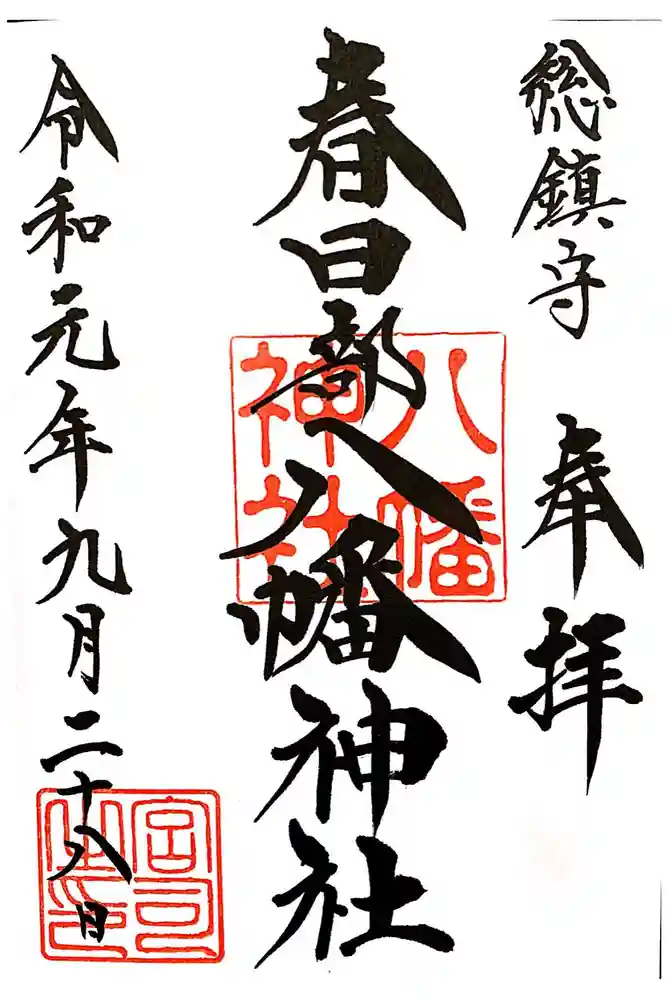 総鎮守 奉拝
春日部八幡神社
令和元年九月二十八日
八幡
神社
宮司
之印